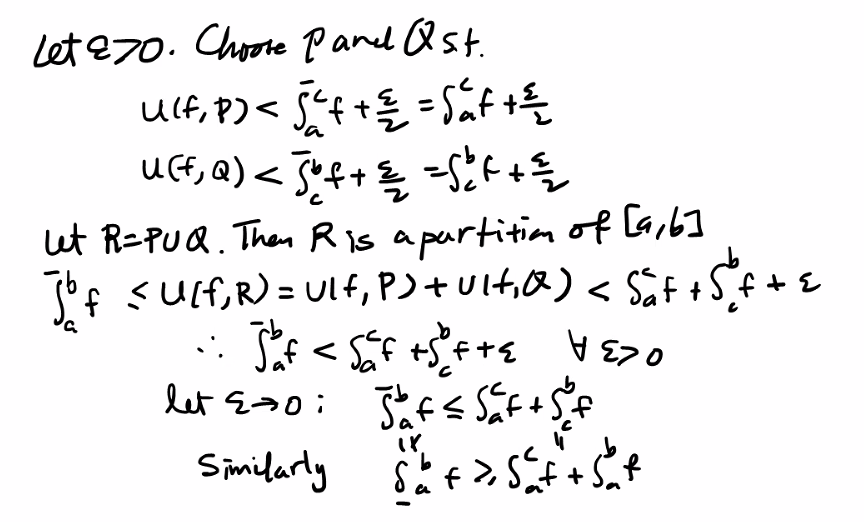 Let ε>0. Choose P and Q s.t.
U(f,P) < \overline{∫}_a^c f + ε/2 = ∫_a^c f + ε/2
U(f,Q) < \overline{∫}_c^b f + ε/2 = ∫_c^b f + ε/2
Let R=P∪Q. Then R is a partition of [a,b]
\overline{∫}_a^b f ≤ U(f,R) = U(f,P) + U(f,Q) < ∫_a^c f + ∫_c^b f + ε
∴ \overline{∫}_a^b f < ∫_a^c f + ∫_c^b f + ε ∀ ε>0
let ε→0 : \overline{∫}_a^b f ≤ ∫_a^c f + ∫_c^b f
I∨ II
Similarly \underline{∫}_a^b f ≥ ∫_a^c f + ∫_a^b f